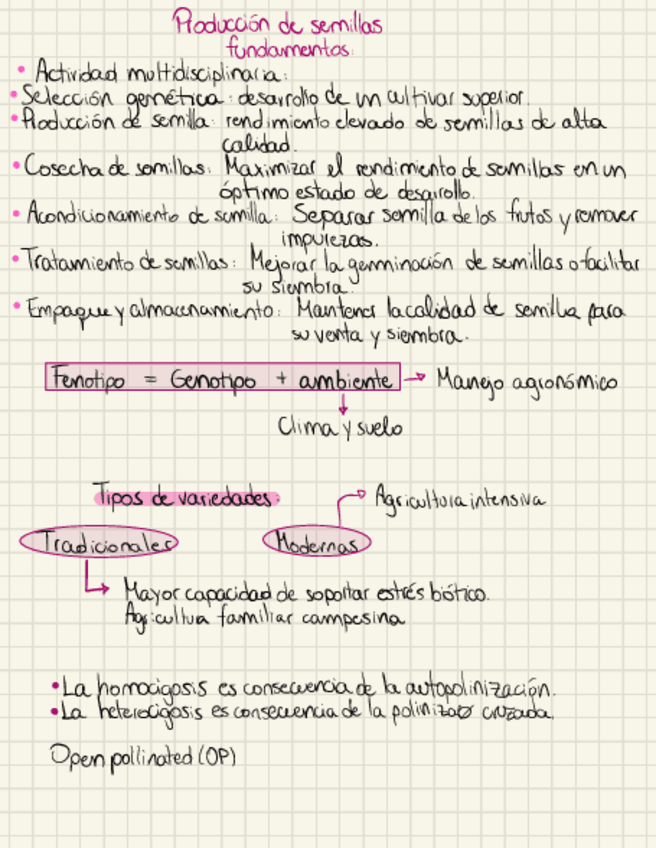 Producción de semillas
fundamentos:
• Actividad multidisciplinaria:
• Selección genética: desarrollo de un cultivar superior.
• Producción de semilla: rendimiento elevado de semillas de alta
calidad.
• Cosecha de semillas: Maximizar el rendimiento de semillas en un
óptimo estado de desarrollo.
• Acondicionamiento de semilla: Separar semilla de los frutos y remover
impurezas.
• Tratamiento de semillas: Mejorar la germinación de semillas o facilitar
su siembra.
• Empaque y almacenamiento: Mantener la calidad de semilla para
su venta y siembra.
Fenotipo = Genotipo + ambiente → Manejo agronómico
Clima y suelo
Tipos de variedades:
Agricultura intensiva
Tradicionales Modernas
Mayor capacidad de soportar estrés biótico.
Agricultua familiar campesina
• La homocigosis es consecuencia de la autopolinización.
• La heterocigosis es consecuencia de la polinizao cruzada.
Open pollinated (OP)